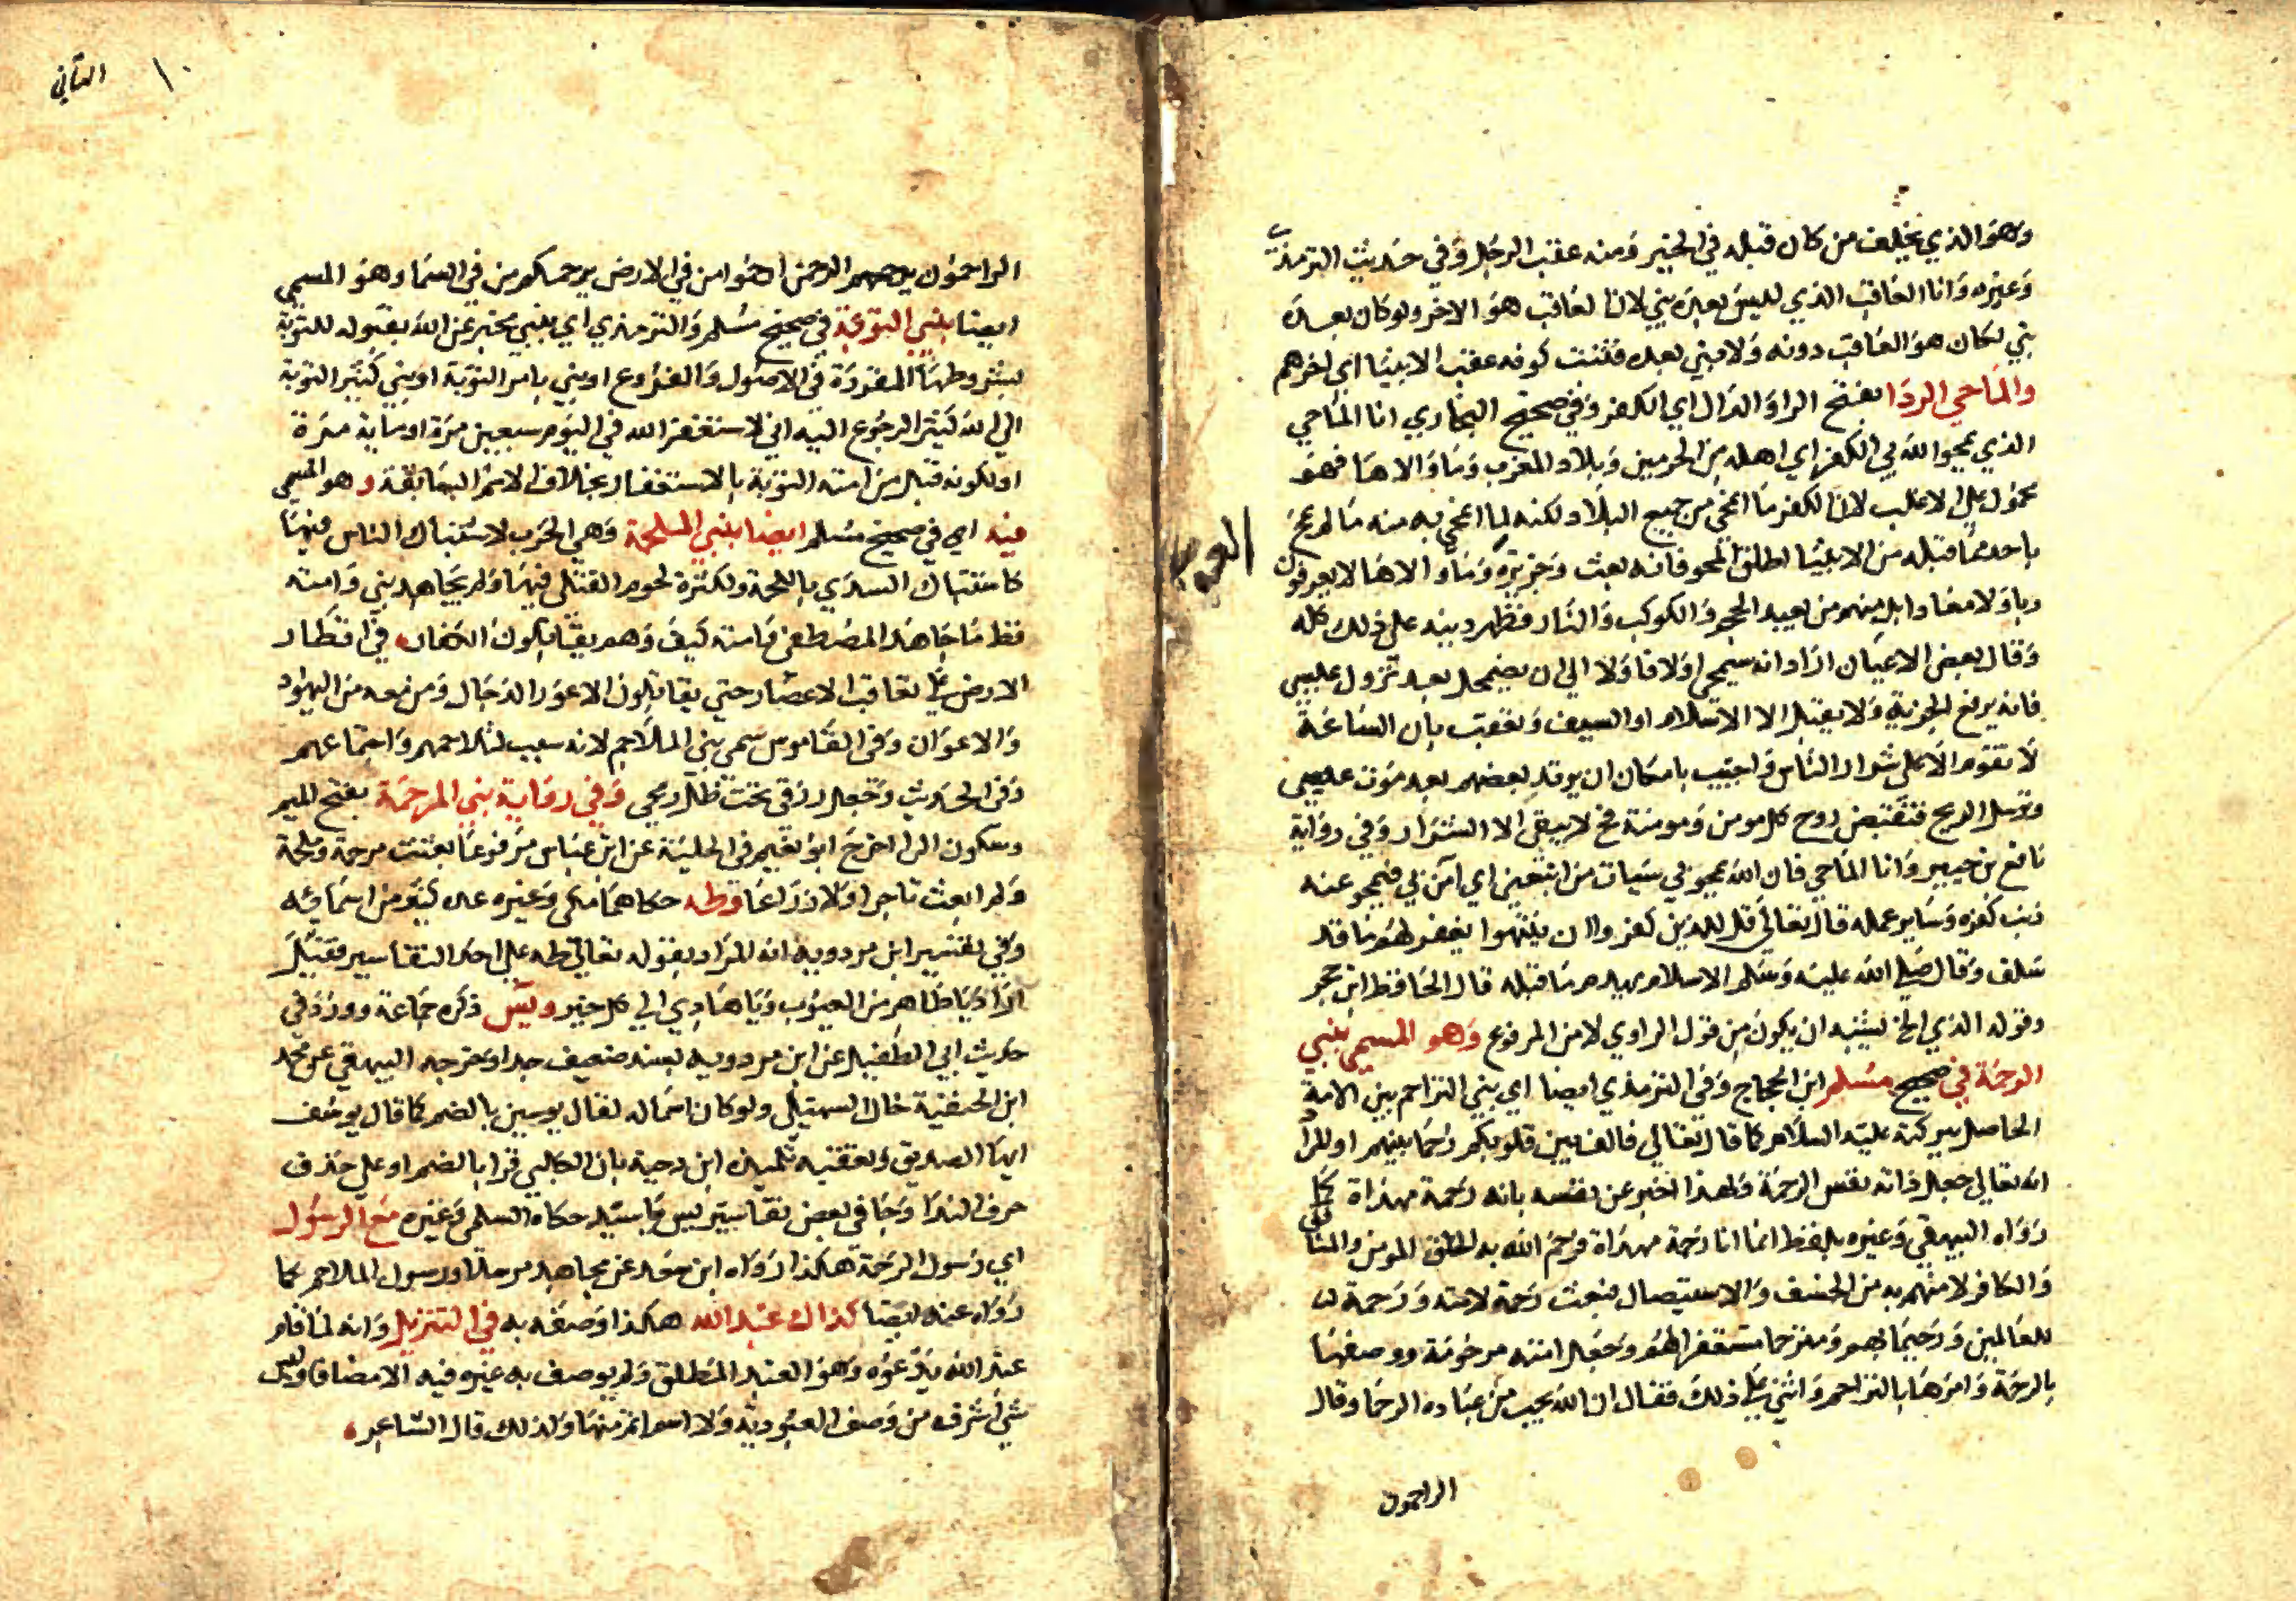 وهو الذي يخلف من كان قبله في الخير ومنه عقب الرجل وفي حديث الترمذي
وغيره وانا العاقب الذي ليس بعده نبي لان العاقب هو الاخر ولو كان بعده
نبي لكان هو العاقب دونه ولا نبي بعده فثبت كونه عقب الانبيا اي اخرهم
والماحي الردا بفتح الرا والدال اي الكفر وفي صحيح البخاري انا الماحي
الذي يمحوا الله بي الكفر اي اهله من الحرمين وبلاد المغرب وما والاها فهو
محمول على الاغلب لان الكفر ما انمحى من جميع البلاد ولكنه لما انمحى به منه ما لم يمح
باحد مما قبله من الانبيا اطلق المحو فانه بعث وجزيرة وما والاها لا يعرفون
ربا ولا معادا بل منهم من يعبد الحجر والكوكب والنار فظهر دينه على ذلك كله
وقال بعض الاعيان اراد انه سيمحى اولا فاولا الى ان يضمحل بعد نزول عيسى
فانه يرفع الجزية ولا يقبل الا الاسلام او السيف وتعقب بان الساعة
لا تقوم الا على شرار الناس واجيب بامكان ان يرتد بعضهم بعد موت عيسى
وترسل الريح فتقبض روح كل مومن ومومنة فح لا يبقى الا الشرار وفي رواية
نافع بن جبير وانا الماحي فان الله يمحو بي سيات من اتبعني اي آمن بي فيمحو عنه
ذنب كفره وساير عمله قال تعالى قل للذين كفروا ان ينتهوا يغفر لهم ما قد
سلف وقال صلى الله عليه وسلم الاسلام يهدم ما قبله قال الحافظ ابن حجر
وقوله الذي الخ يشبه ان يكون من قول الراوي لا من المرفوع وهو المسمى بنبي
الرحمة في صحيح مسلم ابن الحجاج وفي الترمذي ايضا اي بنبي التراحم بين الامة
الحاصل ببركته عليه السلام كما قال تعالى فالف بين قلوبكم رحما بينهم او المراد
انه تعالى جعل ذاته نفس الرحمة ولهذا اخبر عن نفسه بانه رحمة مهداة كما
رواه البيهقي وغيره بلفظ انما انا رحمة مهداة فرحم الله به الخلق المومن والمنافق
والكافر لامنهم به من الخسف والاستيصال فبعث رحمة لامته ورحمة
للعالمين ورحيما بهم ومترحما مستغفرا لهم وجعل امته مرحومة ووصفها
بالرحمة وامرها بالتراحم واثنى على ذلك فقال ان الله يحب من عباده الرحما وقال
الراحمون
١٠ الثاني
الراحمون يرحمهم الرحمن ارحموا من في الارض يرحمكم من في السما وهو المسمى
ايضا بنبي التوبة في صحيح مسلم والترمذي اي بنبي مخبر عن الله بقبوله للتوبة
بشروطها المقررة في الاصول والفروع او نبي يامر التوبة او نبي كثير التوبة
الى الله كثير الرجوع اليه اني لاستغفر الله في اليوم سبعين مرة او ماية مرة
او لكونه قبل من امته التوبة بالاستغفار بخلاف الامم السابقة وهو المسمى
فيه اي في صحيح مسلم ايضا بنبي الملحمة وهي الحرب لاشتباك الناس فيها
كاشتباك السدى باللحمة ولكثرة لحوم القتلى فيها ولم يجاهد نبي وامته
قط ما جاهد المصطفى وامته كيف وهم يقاتلون الكفار في اقطار
الارض على تعاقب الاعصار حتى يقاتلون الاعور الدجال ومن معه من اليهود
والاعوان وفي القاموس سمى نبي الملاحم لانه سبب لتلاحمهم واجتماعهم
وفي الحديث وجعل رزقي تحت ظل رمحي وفي رواية نبي المرحمة بفتح الميم
وسكون الرا اخرج ابو نعيم في الحلية عن ابن عباس مرفوعا بعثت مرحمة وملحمة
ولم ابعث تاجرا ولا زراعا وطه حكاهما مكي وغيره على كثير من اسمائه
وفي تفسير ابن مردويه انه المراد بقوله تعالى طه على احد التفاسير فقيل
اراد يا طاهر من العيوب ويا هادي الى كل خير ويس ذكره جماعة وورد في
حديث ابي الطفيل عن ابن مردويه بسند ضعيف جدا وخرجه البيهقي عن محمد
ابن الحنفية قال السهيلي ولو كان اسما له لقال يوسين بالضم كما قال يوسف
ايها الصديق وتعقبه تلميذه ابن دحية بان الكلبي قرا بالضم او على حذف
حرف الندا وجا في بعض تفاسير يس يا سيد حكاه السلمي وغيره مع الرسول
اي رسول الرحمة هكذا رواه ابن سعد عن مجاهد مرسلا ورسول الملاحم كما
رواه عنه ايضا كذاك عبد الله هكذا وصفه به في التنزيل وانه لما قام
عبد الله يدعوه وهو العبد المطلق ولم يوصف به غيره فيه الا مضافا وليس
شي اشرف من وصف العبودية ولا اسم اتم منها ولذلك قال الشاعر